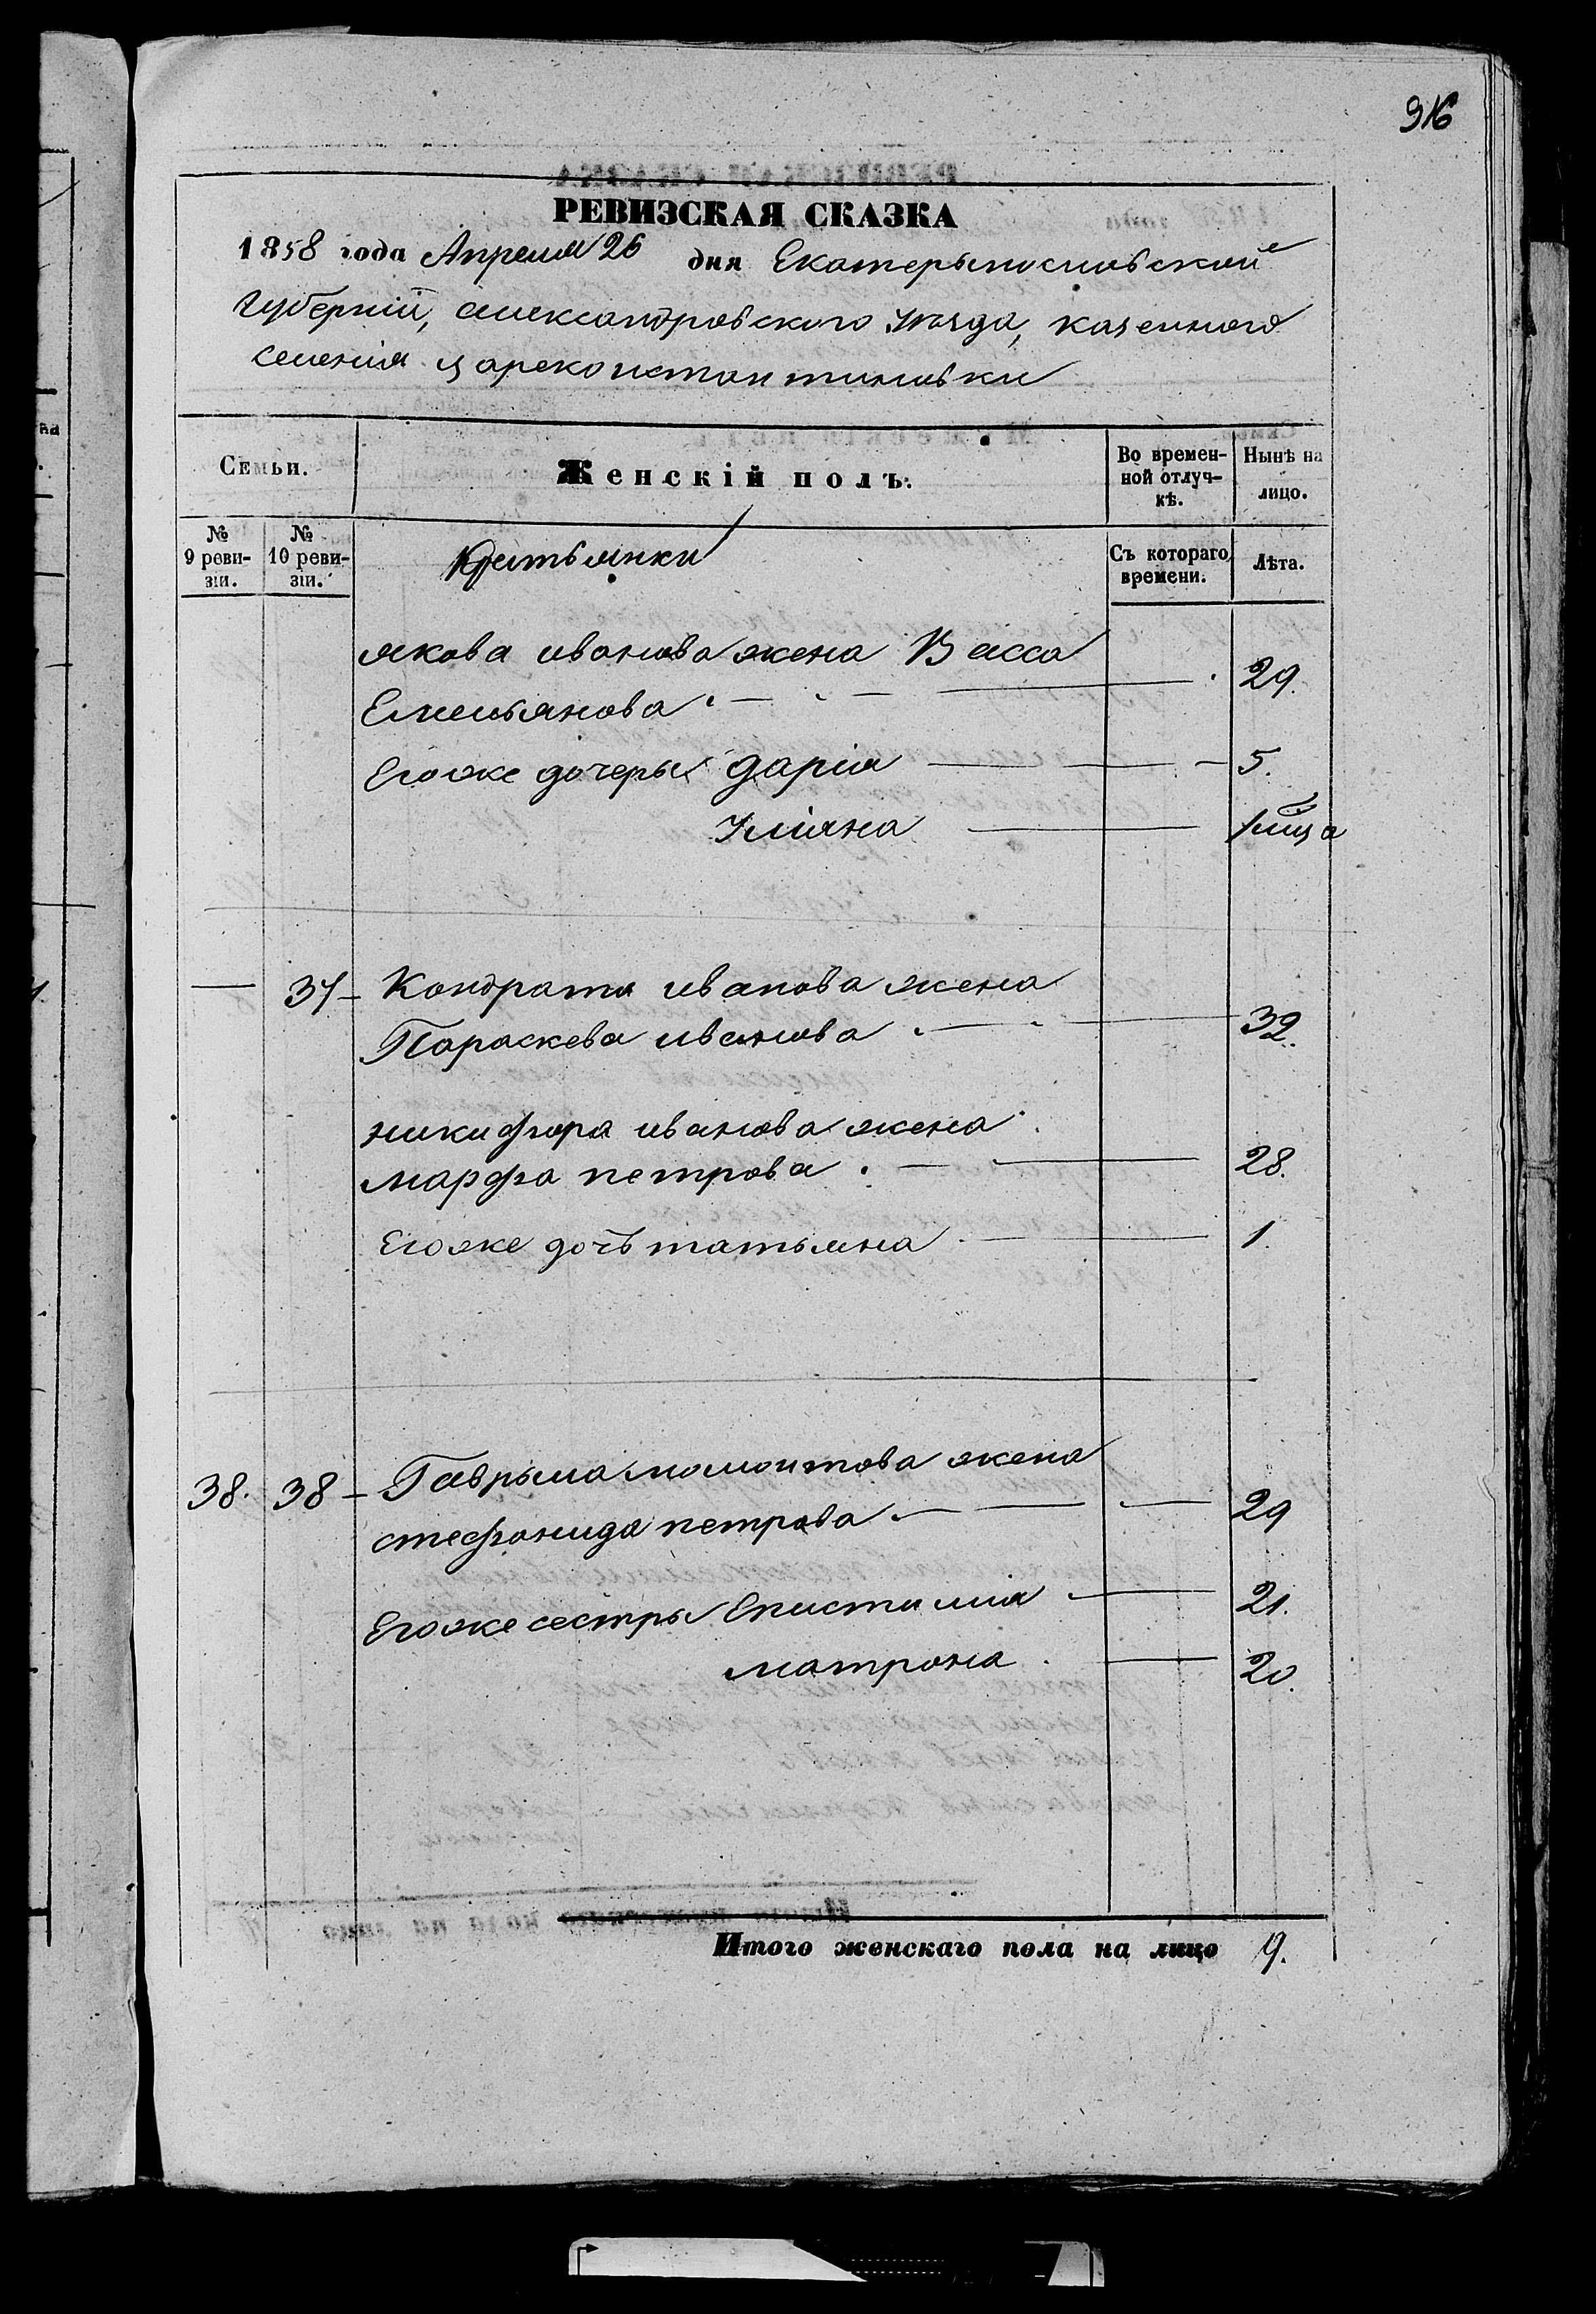 916
РЕВИЗСКАЯ СКАЗКА
1858 года Апреля 26 дня Екатерынославской
Губерніи, александровского уѣзда, казенного
селенія цареконстантиновки
Семьи.
Женскій полъ.
Во времен-
ной отлуч-
кѣ.
Нынѣ на
лицо.
№
9 реви-
зіи.
№
10 реви-
зіи.
Крестьянки
Съ котораго
времени.
Лѣта.
якова иванова жена Васса
Емельянова 29.
Егоже дочеры дарія 5.
Уліяна 1 мца
— 37 Кондрата иванова жена
Параскева иванова 32.
никифора иванова жена
марфа петрова 28.
Егоже дочь татьяна 1.
38. 38 Гаврыла мамонтова жена
стефанида петрова 29
Егоже сестры Епистимія 21.
матрона 20.
Итого женскаго пола на лицо 9.